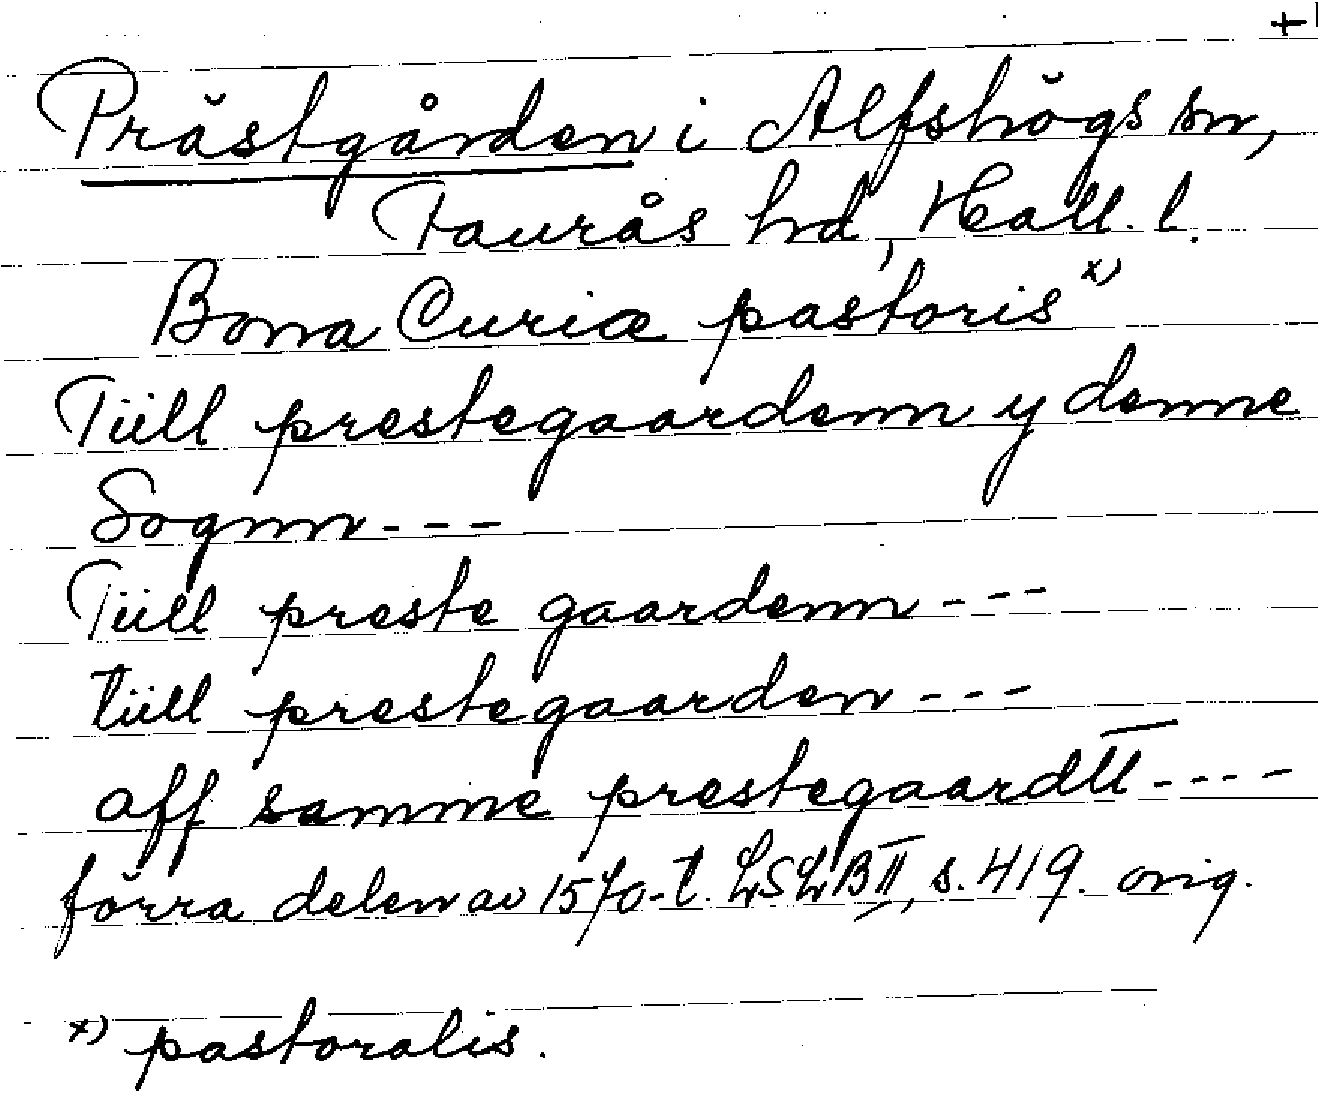 Prästgården i Alfshögs sn,
Faurås hd, Hall. l.
Bona Curiæ pastoris x)
Tüll prestegaardenn y denne
Sognn - - -
Tüll preste gaardenn - - -
tüll prestegaarden - - -
aff samme prestegaardtt - - - -
förra delen av 1570-t. LSLB II, s. 419. orig.
x) pastoralis.